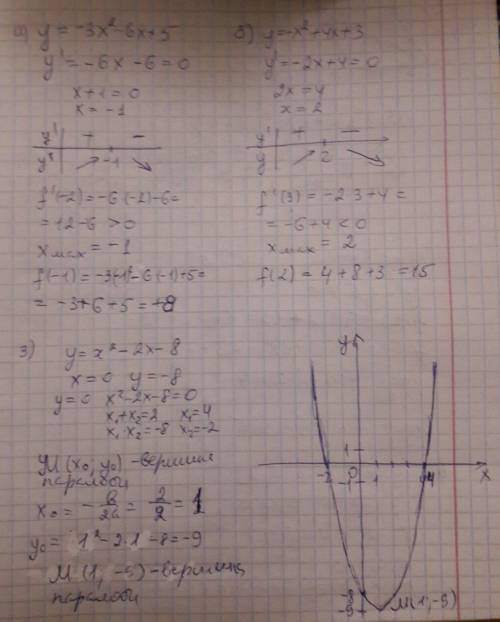 а) y = -3x²-6x+5
y' = -6x -6 = 0
x+1=0
x = -1
y' + -
y -1
f'(-2) = -6·(-2)-6=
= 12-6 > 0
xмах = -1
f(-1) = -3(-1)²-6·(-1)+5=
= -3+6+5=+8
б) y=-x²+4x+3
y'=-2x+4=0
2x=4
x=2
y' + -
y 2
f'(3) = -2·3+4=
= -6+4 < 0
xмах = 2
f(2) = 4+8+3 =15
3)
y=x²-2x-8
x=0 y=-8
y=0 x²-2x-8=0
x₁+x₂=2 x₁=4
x₁·x₂=-8 x₂=-2
M(x₀; y₀) -вершина
параболи
x₀ = -в/2a = 2/2 = 1
y₀= 1²-2·1-8=-9
M(1; -9)-вершина
параболи
y
1
-2 0 1 4 x
-1
-8
-9 M(1;-9)